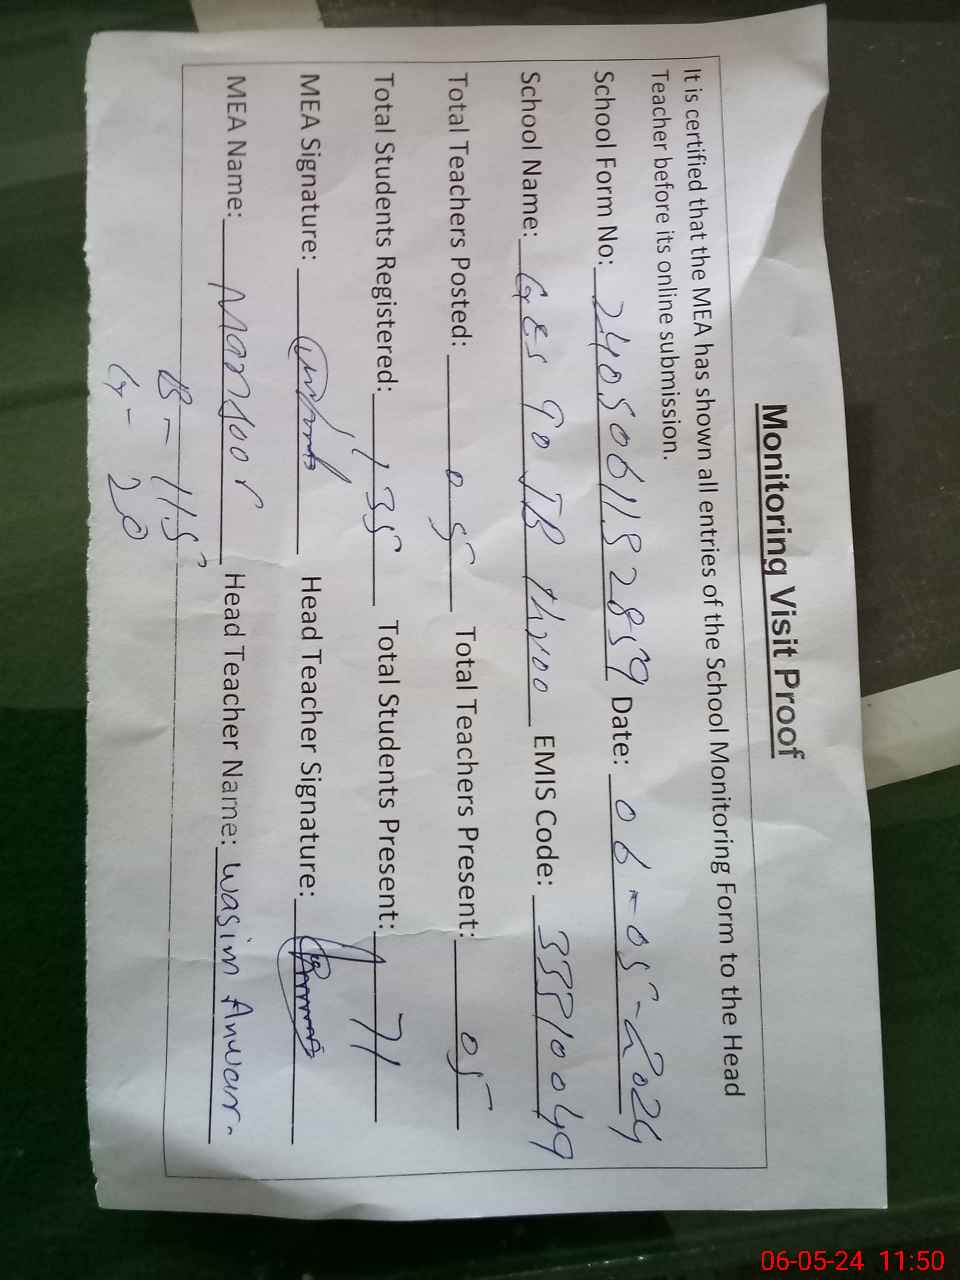 Monitoring Visit Proof
It is certified that the MEA has shown all entries of the School Monitoring Form to the Head
Teacher before its online submission.
School Form No: 2405061152859 Date: 06-05-2024
School Name: GES 90 JB throo EMIS Code: 33310049
Total Teachers Posted: 05 Total Teachers Present: 05
Total Students Registered: 135 Total Students Present: 71
MEA Signature: Head Teacher Signature:
MEA Name: Mansoor Head Teacher Name: Wasim Anwar.
B - 115
G - 20
06-05-24 11:50